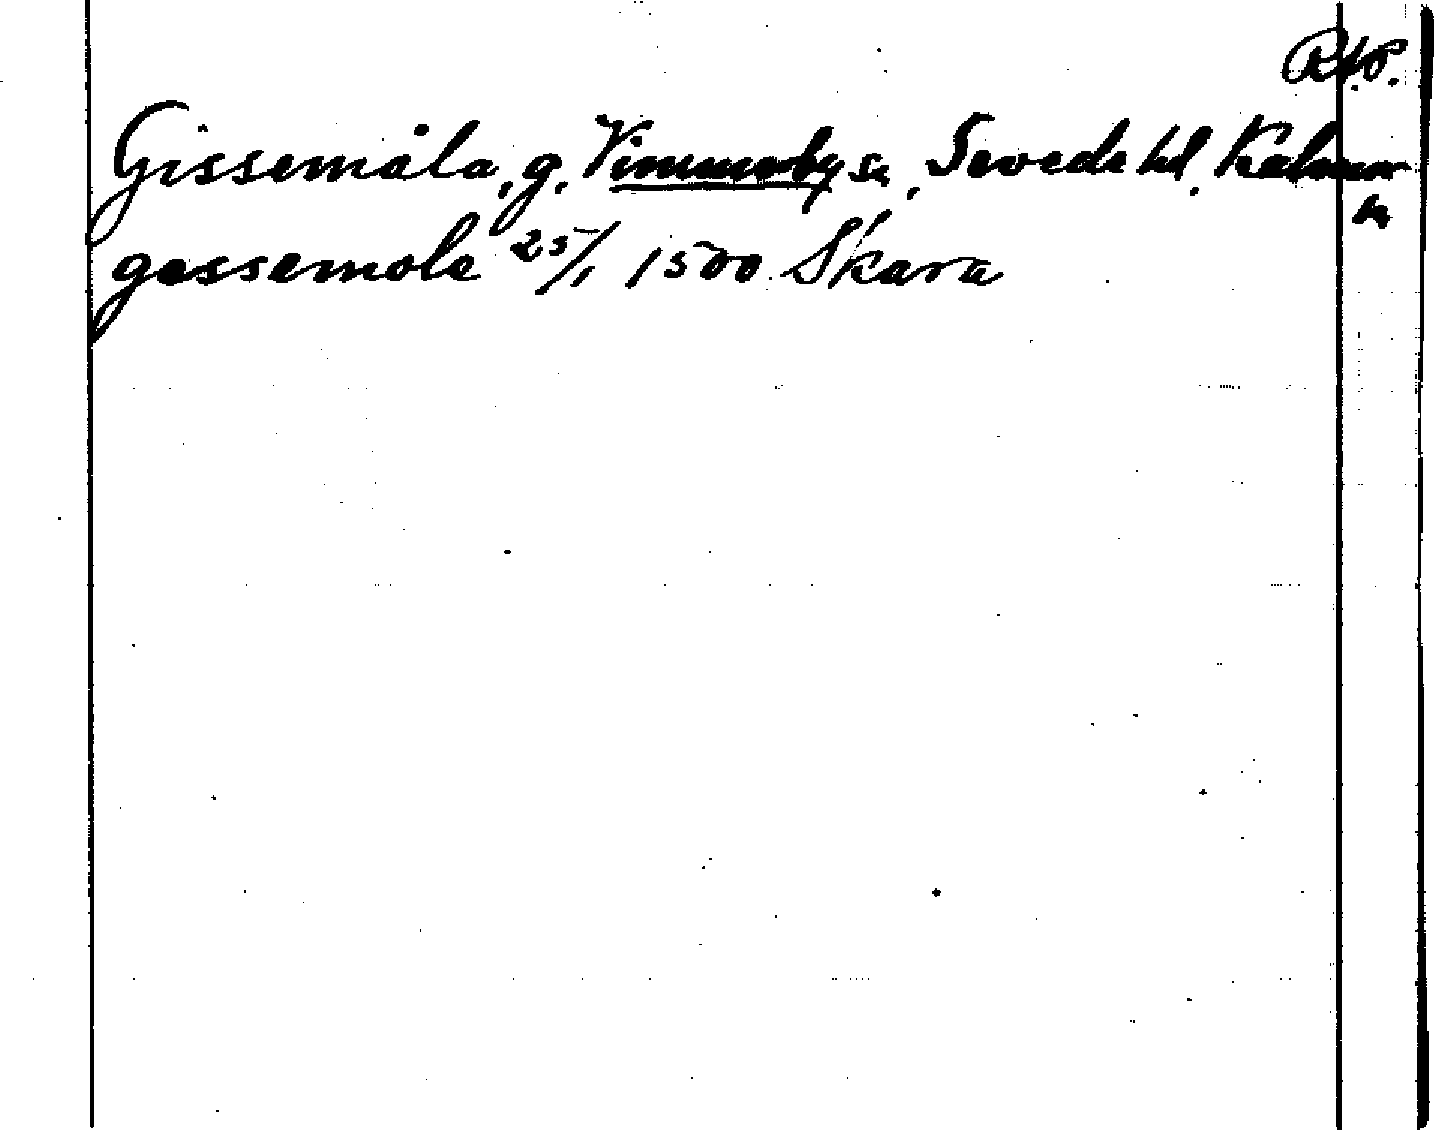 Gissemåla, g. Vimmerby sn, Sevede hd. Kalmar
ln
gessemole 25/1 1500 Skara